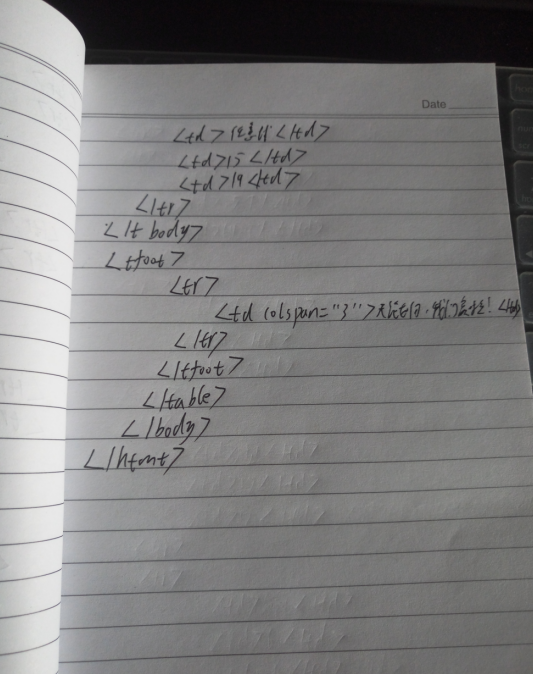 Date
<td> </td>
<td>15</td>
<td>19</td>
</tr>
</tbody>
<tfoot>
<tr>
<td colspan="3"> ! </td>
</tr>
</tfoot>
</table>
</body>
</html>